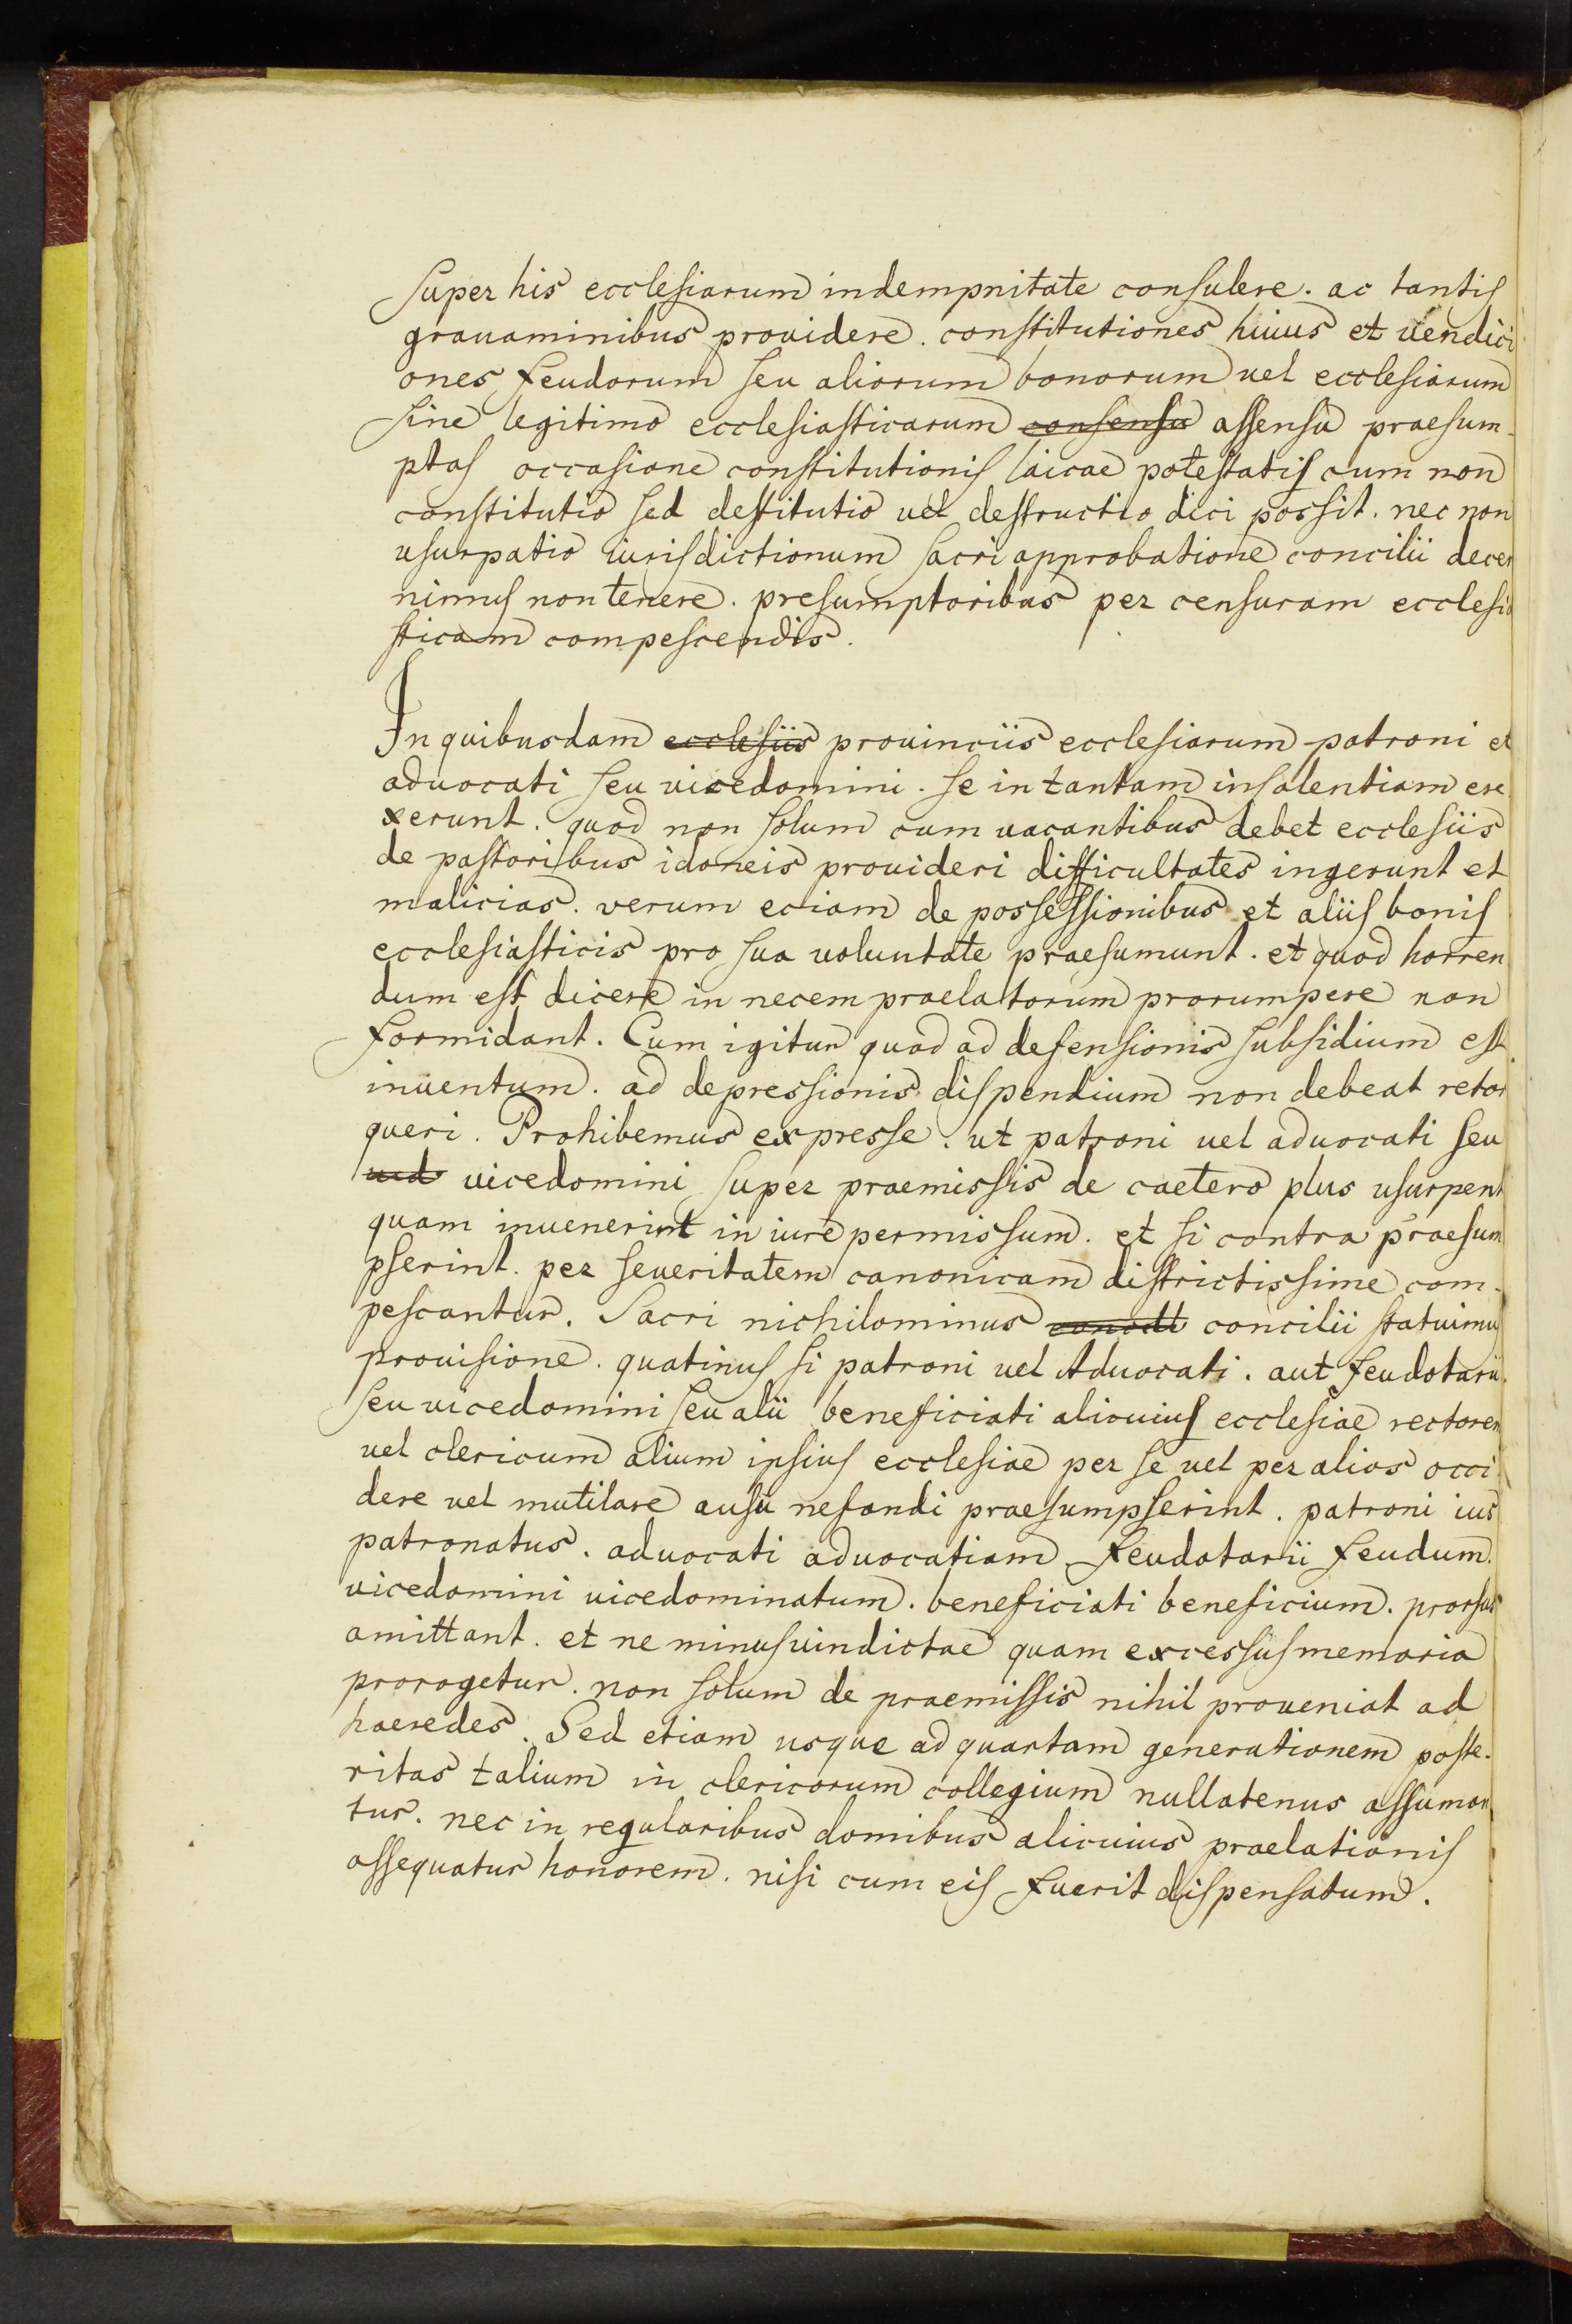 Super his ecclesiarum indempnitate consulere. ac tantis
grauaminibus prouidere. constitutiones huius et uendici
ones feudorum seu aliorum bonorum uel ecclesiarum
sine legitimo ecclesiasticarum consensu assensu praesum-
ptas occasione constitutionis laicae potestatis cum non
constitutio sed destitutio uel destructio dici possit. nec non
usurpatio iurisdictionum sacri approbatione concilii decer
nimus non tenere. presumptoribus per censuram ecclesia
sticam compescendis.
In quibusdam ecclesiis prouinciis ecclesiarum patroni et
aduocati seu uicedomini. se in tantam insolentiam ere
xerunt. quod non solum cum uacantibus debet ecclesiis
de pastoribus idoneis prouideri difficultates ingerunt et
malicias. verum eciam de possessionibus et aliis bonis
ecclesiasticis pro sua uoluntate praesumunt. et quod horren
dum est dicere in necem praelatorum prorumpere non
formidant. Cum igitur quod ad defensionis subsidium est
inuentum. ad depressionis dispendium non debeat retor
queri. Prohibemus expresse. ut patroni uel aduocati seu
uicedomini super praemissis de caetero plus usurpent
quam inuenerint in iure permissum. et si contra praesum
pserint. per seueritatem canonicam districtissime com-
pescantur. Sacri nichilominus concilii statuimus
prouisione. quatinus si patroni uel Aduocati. aut feudotarii.
seu uicedomini seu alii beneficiati alicuius ecclesiae rectorem
uel clericum alium ipsius ecclesiae per se uel per alios occi
dere uel mutilare ausu nefandi praesumpserint. patroni ius
patronatus. aduocati aduocatiam. feudatarii feudum.
uicedomini uicedominatum. beneficiati beneficium. prorsus
amittant. et ne minus uindictae quam excessus memoria
prorogetur. non solum de praemissis nihil proueniat ad
haeredes. Sed etiam usque ad quartam generationem poste-
ritas talium in clericorum collegium nullatenus assuman
tur. nec in regularibus domibus alicuius praelationis
assequatur honorem. nisi cum eis fuerit dispensatum.